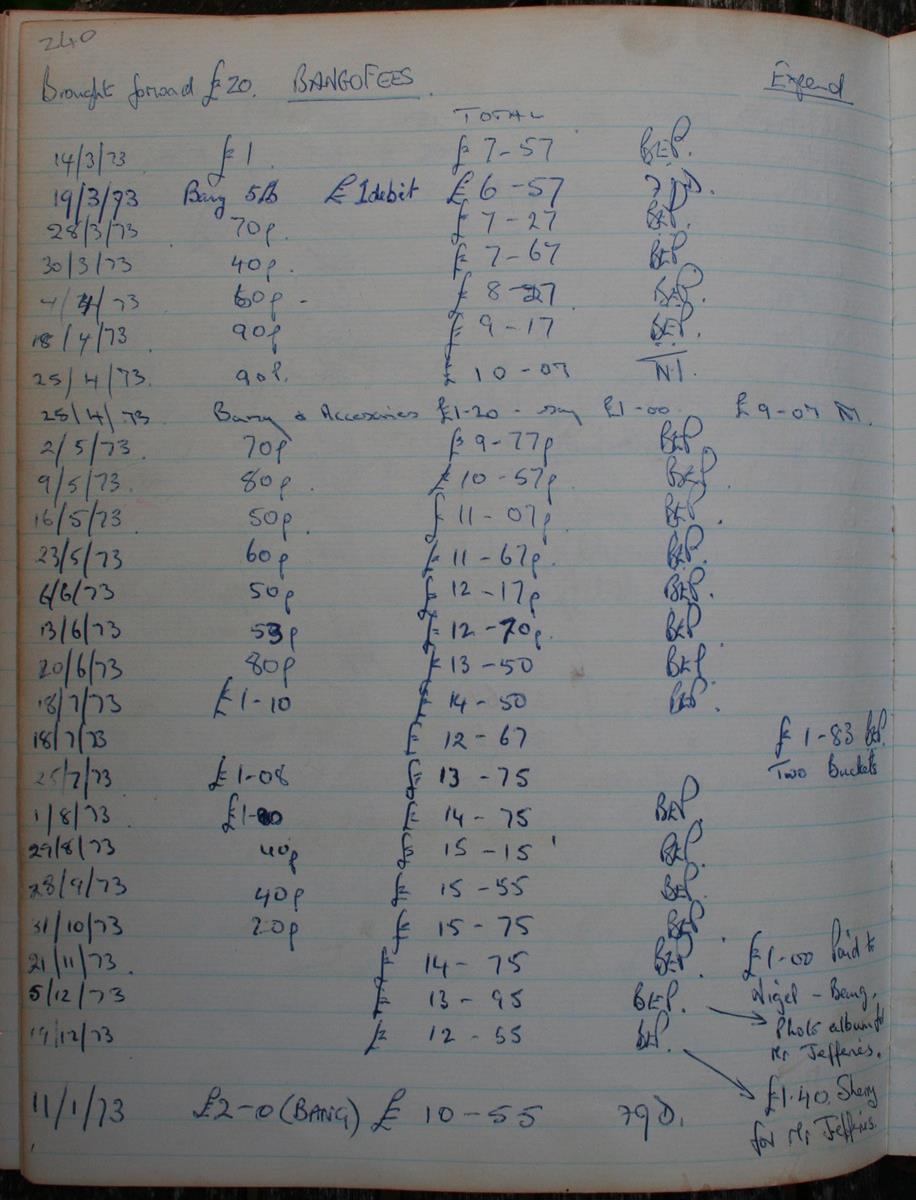 240
Brought forward £20. BANGOFEES. Expend
TOTAL
14/3/73 £1. £7-57 BEP.
19/3/73 Bang 5lb £1 debit £6-57
28/3/73 70p. £7-27 BEP.
30/3/73 40p. £7-67 BEP
4/4/73 60p- £8-27 BEP.
18/4/73 90p £9-17 BEP.
25/4/73. 90p. £10-07 NJ.
25/4/73 Bang & Accessories £1-20 - say £1-00 £9-07
2/5/73. 70p £9-77p BEP
9/5/73. 80p. £10-57p. BEP
16/5/73 50p. £11-07p. BEP
23/5/73 60p £11-67p. BEP.
6/6/73 50p £12-17p BEP.
13/6/73 53p £12-70p. BEP
20/6/73 80p £13-50 BEP
18/7/73 £1-10 £14-50 BEP.
18/7/73 £12-67 £1-83 BEP.
Two Buckets
25/7/73 £1-08 £13-75
1/8/73 £1-00 £14-75 BEP.
29/8/73 40p £15-15 BEP.
28/9/73 40p £15-55 BEP.
31/10/73 20p £15-75 BEP
21/11/73. £14-75 BEP £1-00 Paid to
Nigel - Bang.
5/12/73 £13-95 BEP. Photo album for
Mr Jefferies.
19/12/73 £12-55 BEP. £1.40. Sherry
for Mr Jefferis.
11/1/73 £2-0 (BANG) £10-55